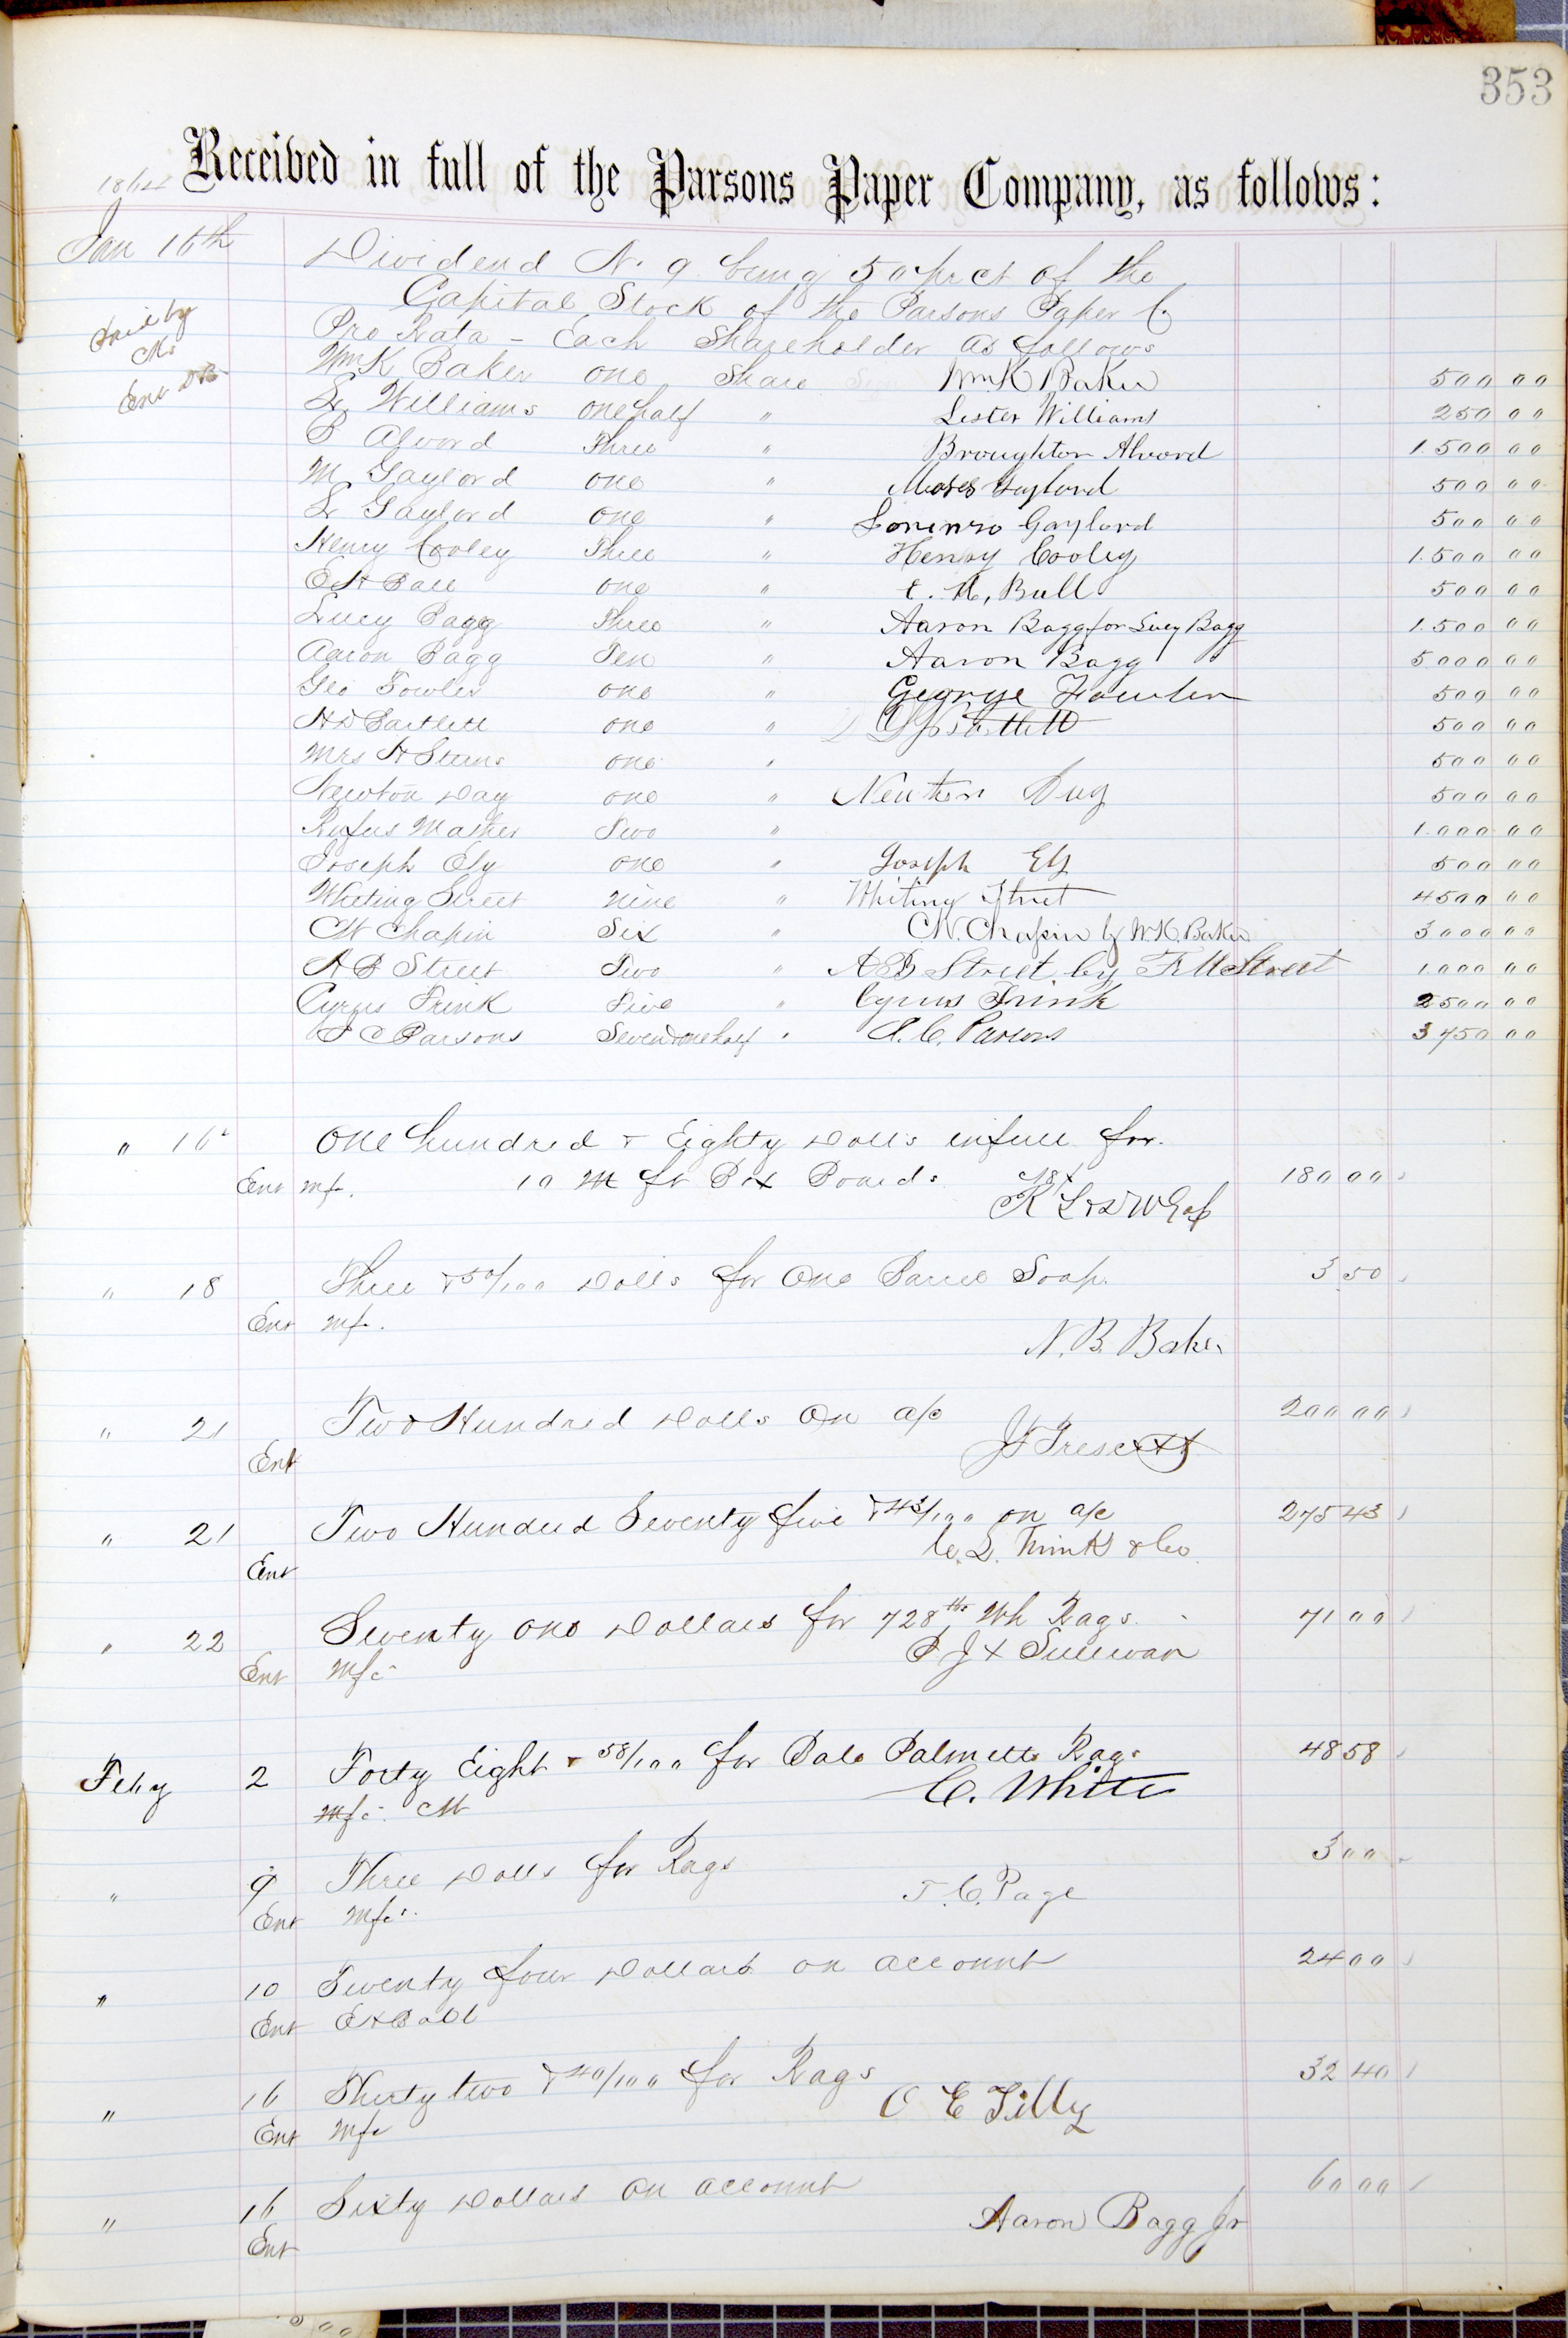 353
Received in full of the Parsons Paper Company, as follows:
1864
Jan 16th Dividend No. 9 being 50 pr ct of the
Capital Stock of the Parsons Paper Co.
Paid by Pro Rata - Each Shareholder as follows
Ent Wm K Baker one Share Wm K Baker 500 00
L Williams one half " Lester Williams 250 00
B Alvord Three " Broughton Alvord 1.500 00
M Gaylord one " Moses Gaylord 500 00
L Gaylord one " Lorenzo Gaylord 500 00
Henry Cooley Three " Henry Cooley 1.500 00
E H Ball one " E. H. Ball 500 00
Lucy Bagg Three " Aaron Bagg for Lucy Bagg 1.500 00
Aaron Bagg Ten " Aaron Bagg 5000 00
Geo Fowler one " George Fowler 500 00
H D Bartlett one " Bartlett 500 00
Mrs A Sterns one " 500 00
Newton Day one " Newton Day 500 00
Rufus Mather Two " 1.000 00
Joseph Ely one " Joseph Ely 500 00
Whiting Street nine " Whiting Street 4500 00
C W Chapin Six " C W. Chapin by W. K. Baker 3000 00
A B Street Two " A B Street by F M Street 1.000 00
Cyrus Frink Five " Cyrus Frink 2500 00
J C Parsons Seven & one half " J. C. Parsons 3750 00
" 16 One hundred & Eighty Dolls in full for 180 00
Ent Mfr. 10 M ft Box Boards
R L & D W
" 18 Three & 50/100 Dolls for One Barrel Soap 3 50
Ent Mfr.
N. B. Baker
" 21 Two Hundred Dolls On a/c 200 00
Ent J Prescott
" 21 Two Hundred Seventy five & 43/100 on a/c 275 43
Ent C. L. Frink & Co
" 22 Seventy one Dollars for 728 lbs Wh Rags 71 00
Ent Mfr P J X Sullivan
Feby 2 Forty Eight & 58/100 for Bale Palmetto Rags 48 58
Mfr. C. White
" 9 Three Dolls for Rags 3 00
Ent Mfr. J. C. Page
" 10 Twenty four Dollars on account 24 00
Ent E H Ball
" 16 Thirty two & 40/100 for Rags 32 40
Ent Mfr O E Tilly
" 16 Sixty Dollars on account 60 00
Ent Aaron Bagg Jr